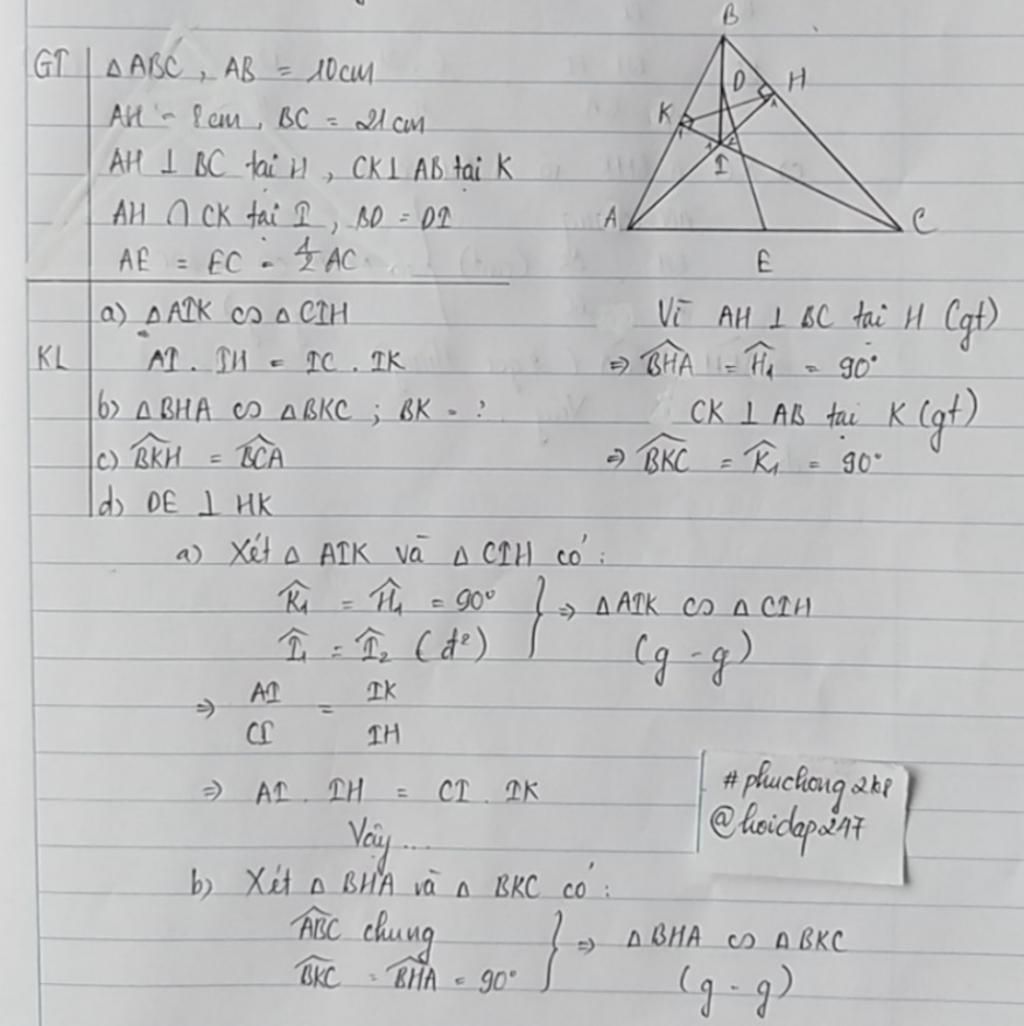 GT | ΔABC, AB = 10cm
AH = 8cm, BC = 21cm
AH ⊥ BC tại H, CK ⊥ AB tại K
AH ∩ CK tại I, BD = DI
AE = EC = 1/2 AC
KL | a) ΔAIK ∽ ΔCIH
AI . IH = IC . IK
b) ΔBHA ∽ ΔBKC ; BK = ?
c) \widehat{BKH} = \widehat{BCA}
d) DE ⊥ HK
B
D
H
K
I
A
C
E
Vì AH ⊥ BC tại H (gt)
⇒ \widehat{BHA} = \widehat{H₁} = 90°
CK ⊥ AB tại K (gt)
⇒ \widehat{BKC} = \widehat{K₁} = 90°
a) Xét Δ AIK và Δ CIH có :
\widehat{K₁} = \widehat{H₁} = 90°
\widehat{I₁} = \widehat{I₂} (đ²)
} ⇒ ΔAIK ∽ ΔCIH
(g - g)
⇒ AI/CI = IK/IH
⇒ AI . IH = CI . IK
Vậy ...
#phuchong2k8
@hoidap247
b) Xét Δ BHA và Δ BKC có :
\widehat{ABC} chung
\widehat{BKC} = \widehat{BHA} = 90°
} ⇒ ΔBHA ∽ ΔBKC
(g - g)